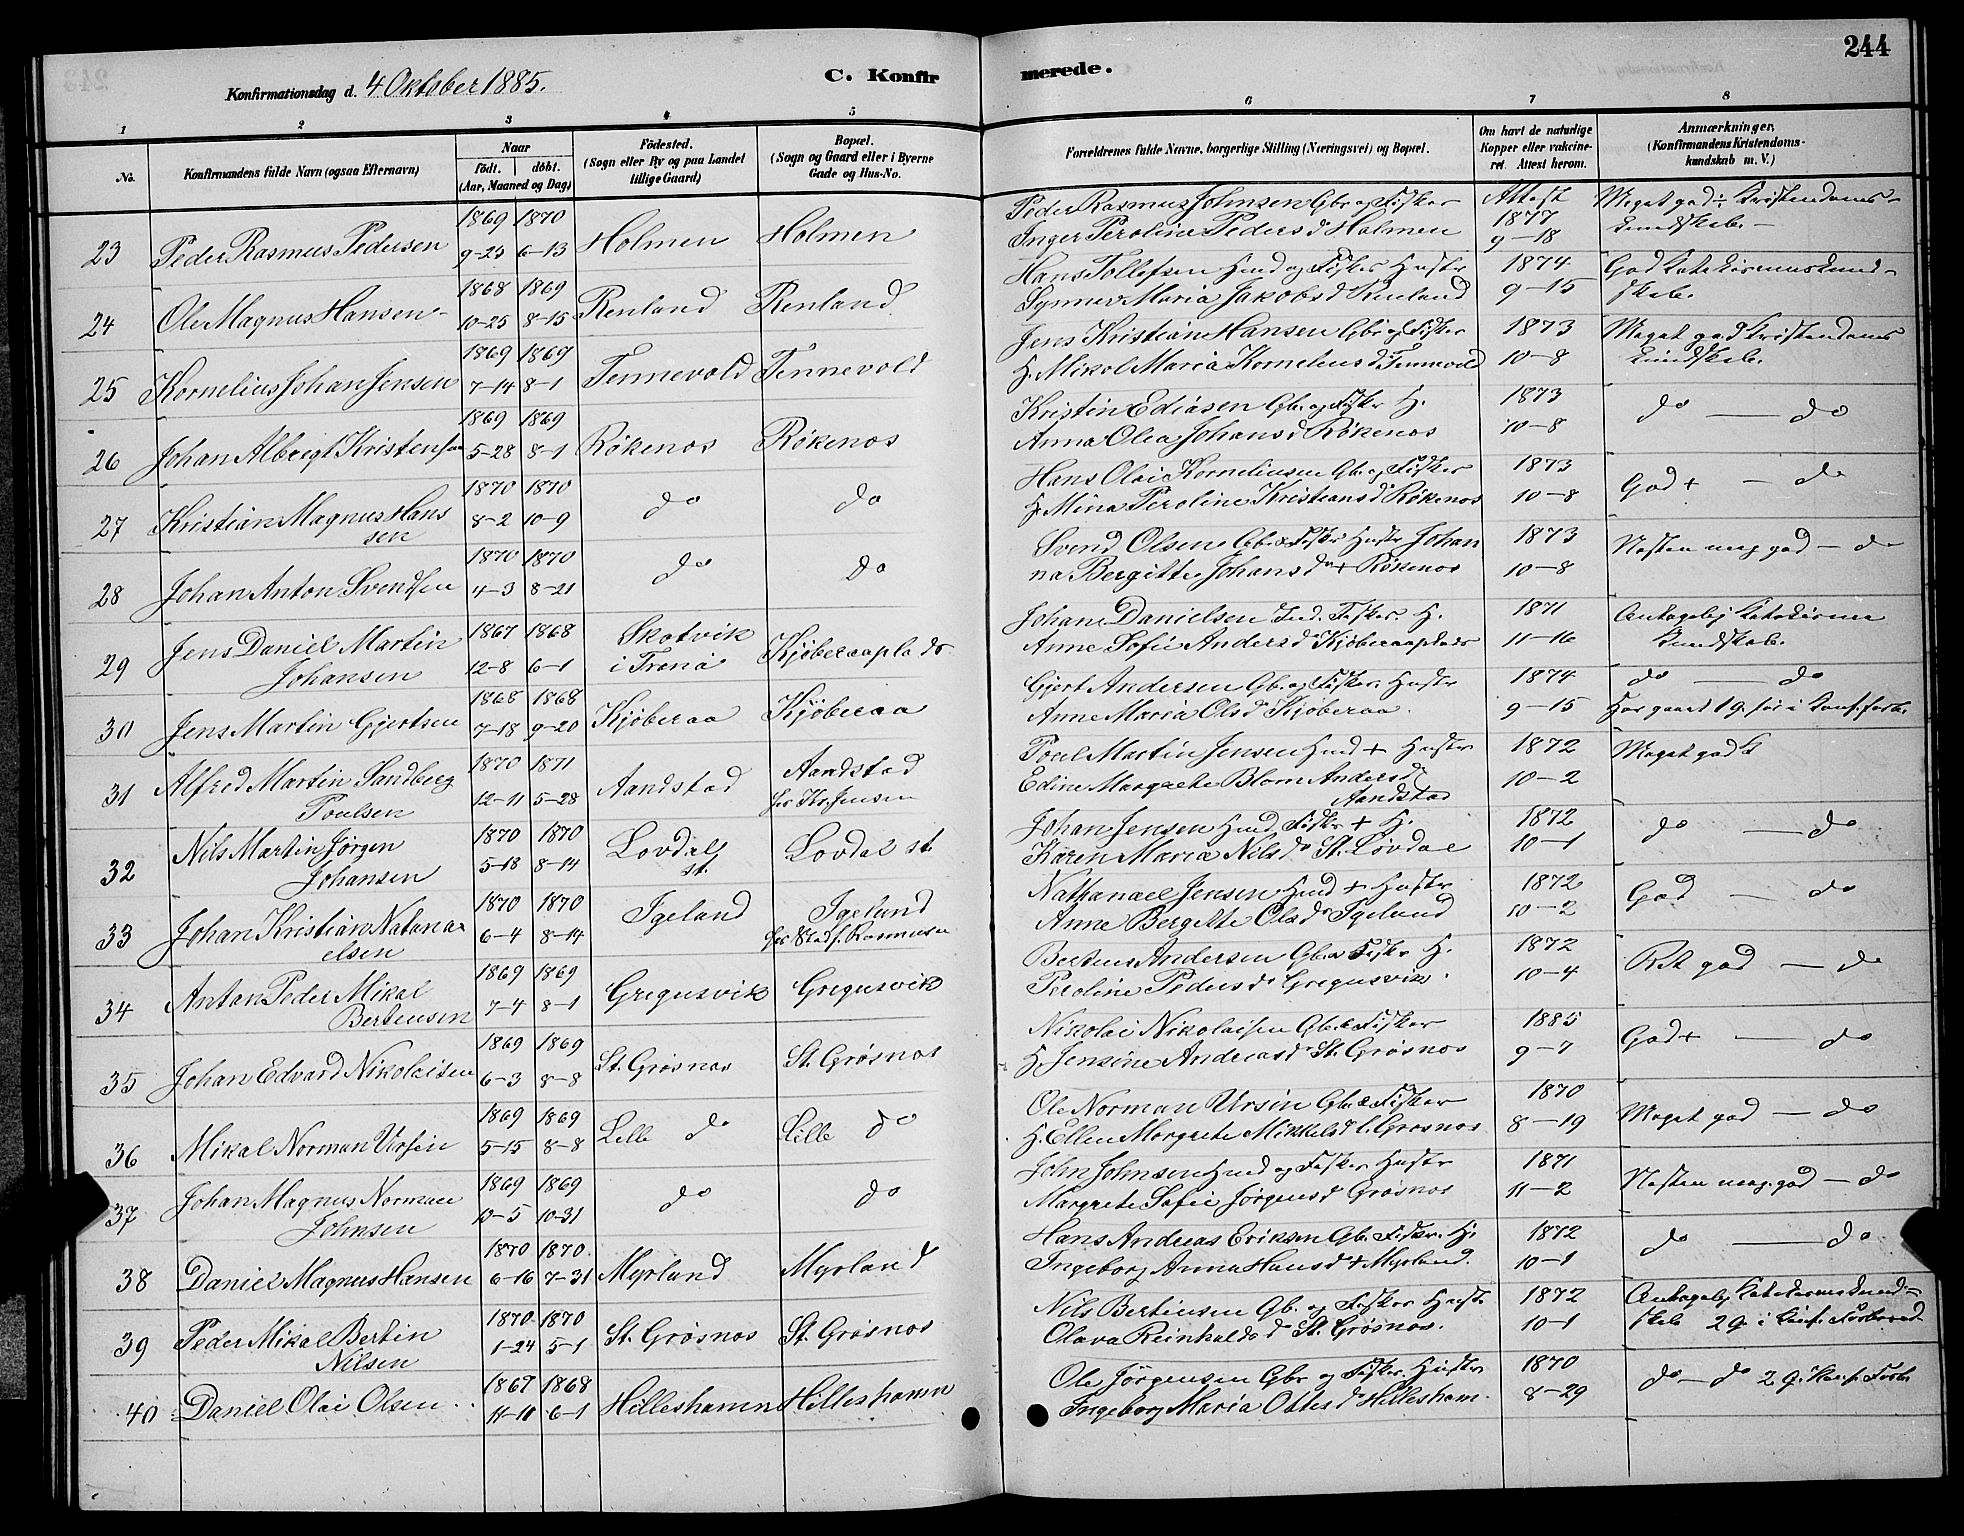 244
Konfirmationsdag d. 4 Oktober 1885.
C. Konfir
merede.
1 2 3 4 5 6 7 8
No.
Konfirmandens fulde Navn (ogsaa Efternavn)
Naar
født. døbt.
(Aar, Maaned og Dag)
Fødested.
(Sogn eller By og paa Landet
tillige Gaard)
Bopæl.
(Sogn og Gaard eller i Byerne
Gade og Hus-No.
Forældrenes fulde Navne, borgerlige Stilling (Næringsvei) og Bopæl.
Om havt de naturlige
Kopper eller vakcine-
ret. Attest herom.
Anmærkninger,
(Konfirmandens Kristendoms-
kundskab m. V.)
1869 1870 Peder Rasmus Johnsen Gbr og Fisker Attest Meget god ÷ Kristendoms-
23 Peder Rasmus Pedersen 9-25 6-13 Holmen Holmen Inger Peroline Peders d Holmen 1877 9-18 kundskab. -
1868 1869 Hans Tollefsen Hmd og Fisker Hustr 1874 God Katekismuskund-
24 Ole Magnus Hansen 10-25 8-15 Renland Renland Maria Jakobs d Renland 9-15 skab.
1869 1869 Jens Kristian Hansen Gbr og Fisker 1873 Meget god Kristendoms
25 Kornelius Johan Jensen 7-14 8-1 Tennevold Tennevold H. Mikal Maria Kornelius d Tennevold 10-8 kundskab.
1869 1869 Kristin Ediasen Gbr. og Fisker H. 1873 do — do
26 Johan Albregt Kristensen 5-28 8-1 Røkenos Røkenos Anna Olea Johans d Røkenos 10-8
1870 1870 Hans Olai Korneliusen Gb. og Fisker 1873 God + — do
27 Kristian Magnus Hans 8-2 10-9 do do H. Mina Peroline Kristians d Røkenos 10-8
sen
1870 1870 Svend Olsen Gb. & Fisker Hustr Johan 1873 Nesten meg. god — do
28 Johan Anton Svendsen 4-3 8-21 do do na Bergitte Johans d + Røkenos 10-8
29 Jens Daniel Martin 1867 1868 Skotvik Johan Danielsen Ind. Fisker. H. 1871 Antagelig Katekisme
Johansen 12-8 6-1 i Trenå Kjøberaaplads Anne Sofie Anders d Kjøberaaplads 11-16 kundskab.
1868 1868 Gjert Andersen Gb. og Fisker Hustr 1874 do — do
30 Jens Martin Gjertsen 7-18 9-20 Kjøberaa Kjøberaa Anne Maria Ols d Kjøberaa. 9-15 Har gaaet 1 g. før i Konf. forb.
31 Alfred Martin Sandberg 1870 1871 Aandstad Aandstad Poul Martin Jensen Hmd + Hustr 1872 Meget god
Poulsen 12-11 5-28 hos Kr. Jensen Edine Margrete Blom Anders d 10-2
Aandstad
32 Nils Martin Jørgen 1870 1870 Lovdal Lovdal st. Johan Jensen Hmd Fisker + H. 1872 do — do
Johansen 5-18 8-14 st. Karen Maria Nils d St. Løvdal 10-1
33 Johan Kristian Natana= 1870 1870 Igeland Igeland Nathanael Jensen Hmd + Hustr 1872 God — do
elsen 6-4 8-14 Rasmusen Anne Bergitte Ols d Igeland 10-2
34 Anton Peder Mikal 1869 1869 Gregusvik Gregusvik Berteus Andersen Gb. & Fisker H. 1872 Ret god — do
Bertensen 7-4 8-1 Peroline Peders d Gregusvik. 10-4
1869 1869 Nikolai Nikolaisen Gb. & Fisker 1885 God + — do
35 Johan Edvard Nikolaisen 6-3 8-8 St. Grøsnos St. Grøsnos H. Jensine Andreas d St. Grøsnos 9-7
1869 1869 Ole Norman Ursin Gb. & Fisker 1870 Meget god — do
36 Mikal Norman Ursin 5-15 8-8 Lille do Lille do H. Ellen Margrete Mikkels d L. Grøsnos 8-19
37 Johan Magnus Norman 1869 1869 do do John Johnsen Hmd og Fisker Hustr 1871 Nesten meg. god — do
Johnsen 10-5 10-31 Margrete Sofie Jørgens d Grøsnos 11-2
1870 1870 Hans Andreas Eriksen Gb. Fisker. H. 1872 do — do
38 Daniel Magnus Hansen 6-16 7-31 Myrland Myrland Ingeborg Anna Hans d + Myrland. 10-1
39 Peder Mikal Bertin 1870 1870 St. Grøsnos St. Grøsnos Nils Bertinsen Gb. og Fisker Hustr 1872 Antagelig Katekismuskund=
Nilsen 1-24 5-1 Olava Reinholds d St. Grøsnos. 10-1 skab 2 g. i Konf. Forbered
1867 1868 Ole Jørgensen Gbr og Fisker Hustr 1870 do — do 2 g. Konf. Forb.
40 Daniel Olai Olsen 11-11 6-1 Hilleshamn Hilleshamn Ingeborg Maria Ottes d Hillesham. 8-29